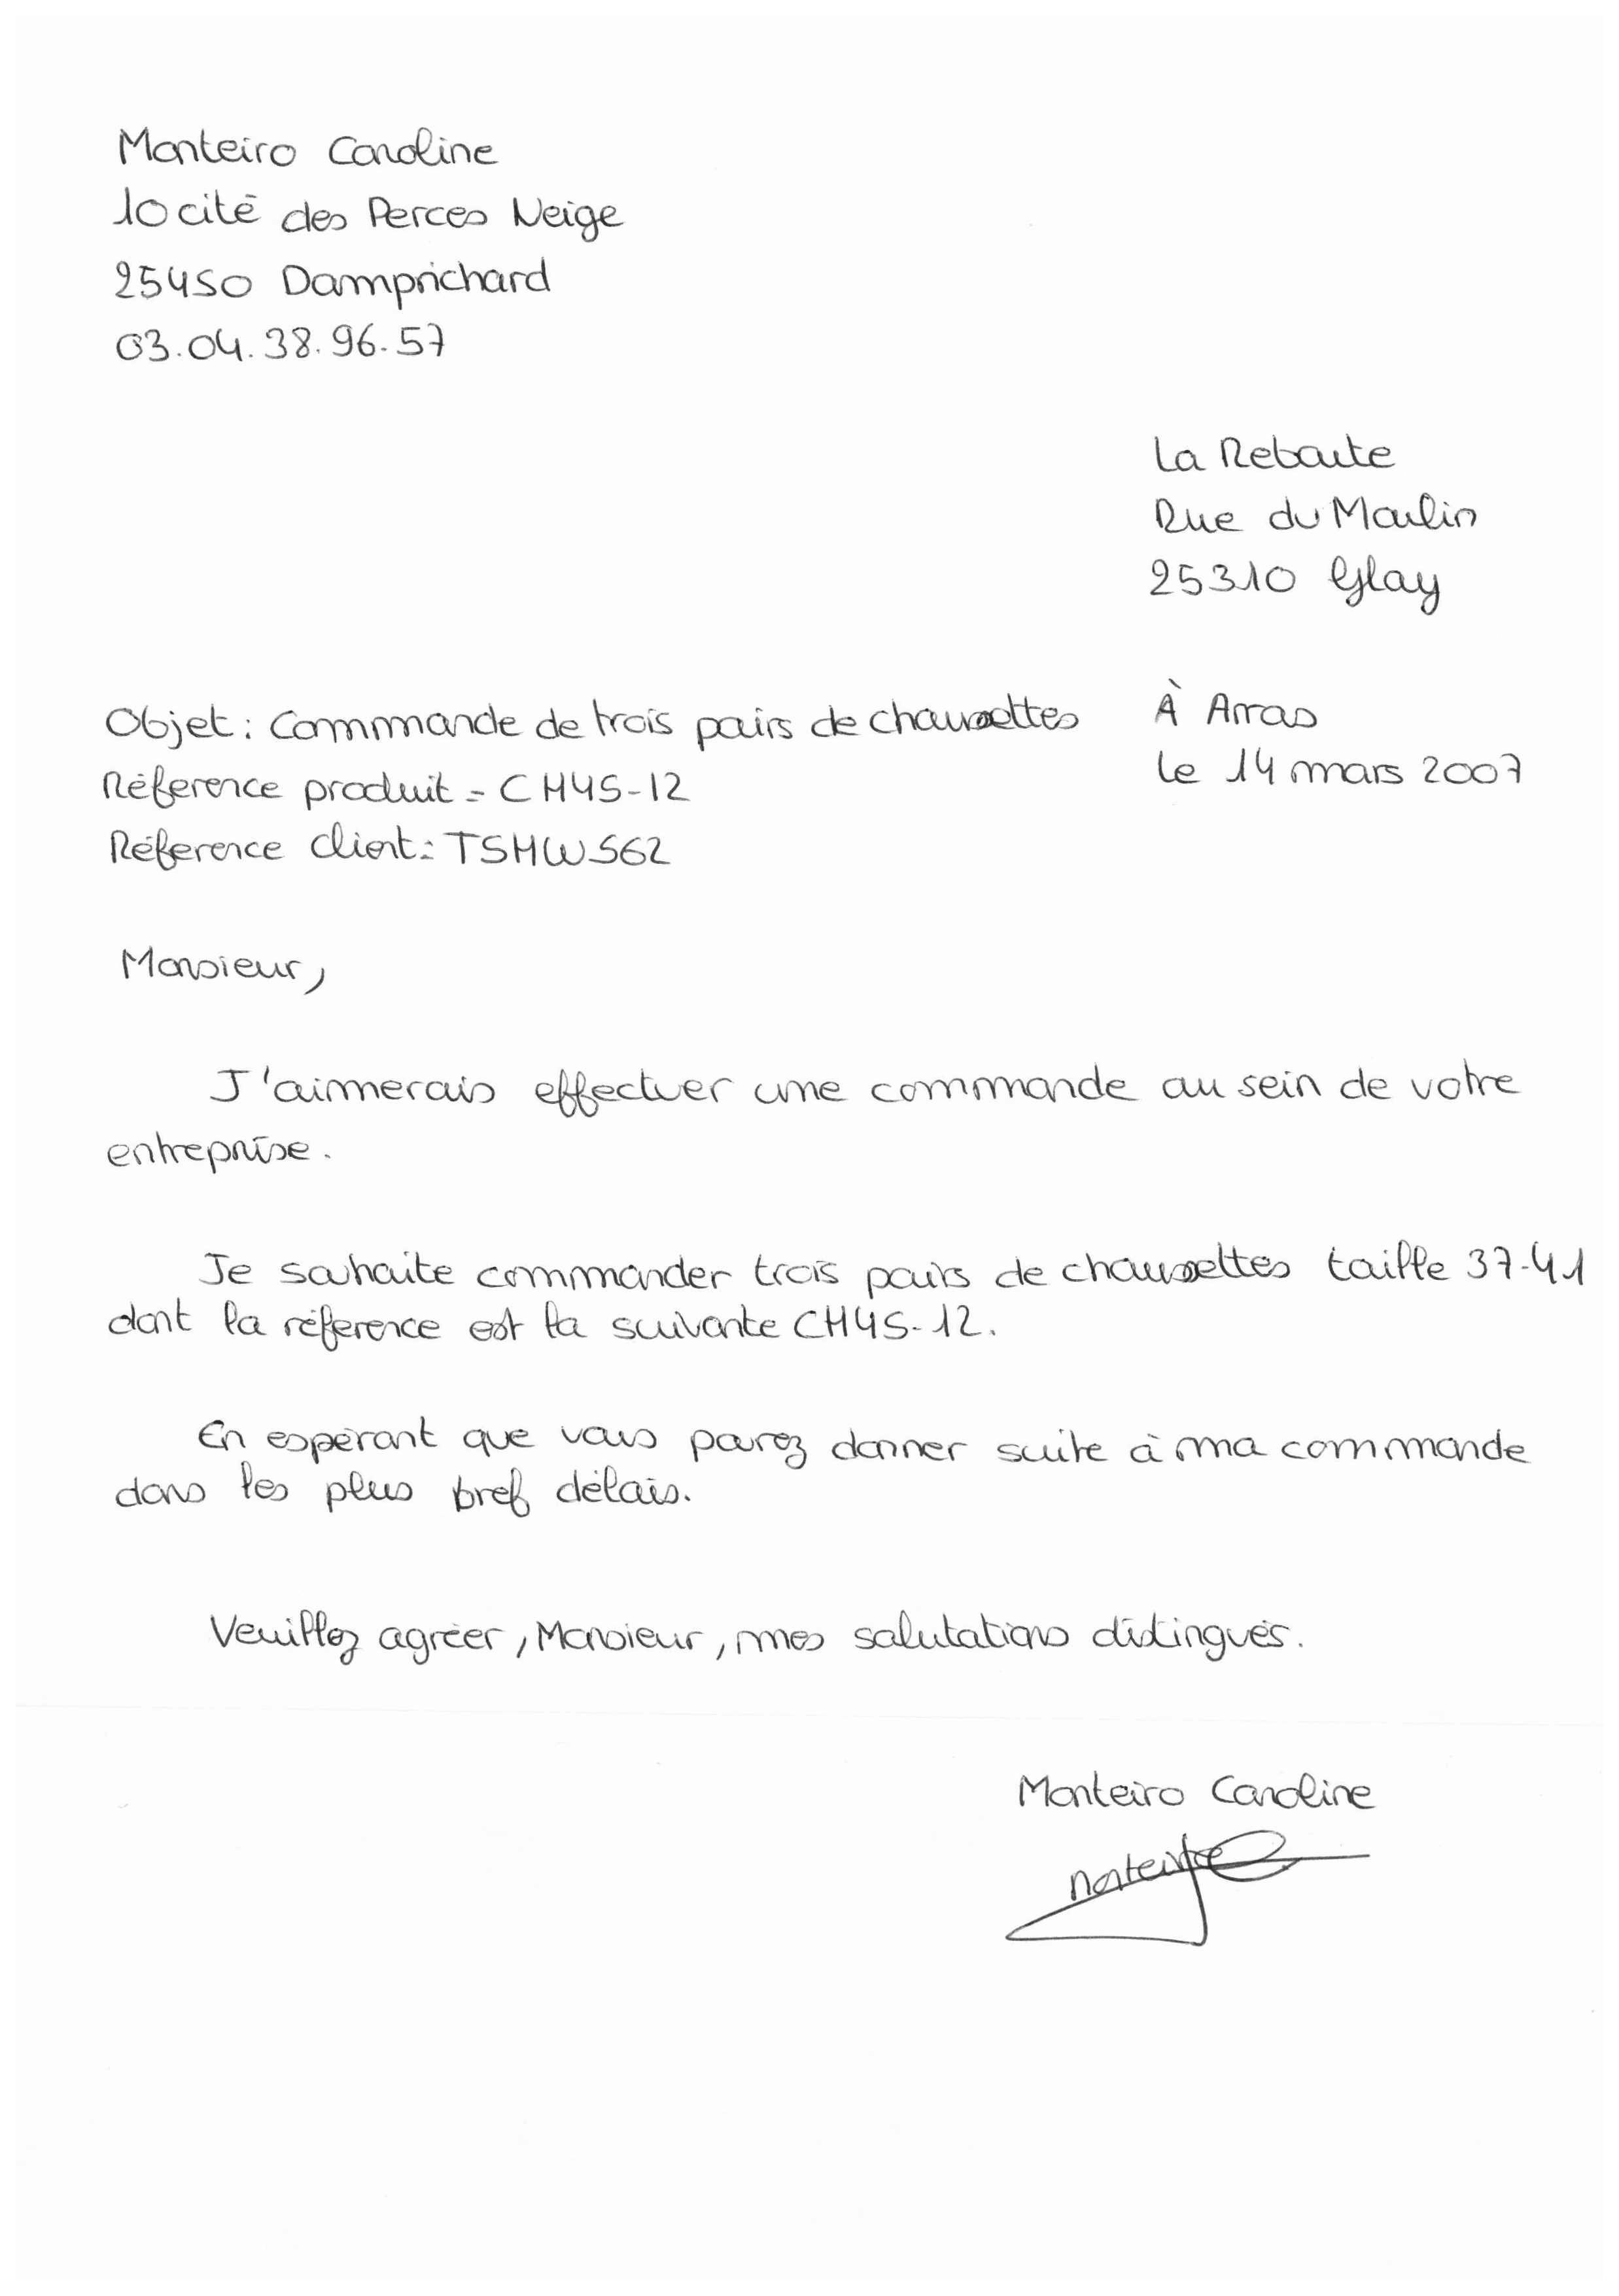 Monteiro Caroline
10 cité des Perces Neige
25450 Damprichard
03.04.38.96.57
La Reboute
Rue du Moulin
25310 Glay
Objet : Commande de trois pairs de chaussettes
À Arras
le 14 mars 2007
Référence produit = CH4S-12
Référence client : TSHWS62
Monsieur,
J'aimerais effectuer une commande au sein de votre
entreprise.
Je souhaite commander trois pairs de chaussettes taille 37-41
dont la référence est la suivante CH4S-12.
En espérant que vous pourez donner suite à ma commande
dans les plus bref délais.
Veuillez agréer, Monsieur, mes salutations distingués.
Monteiro Caroline